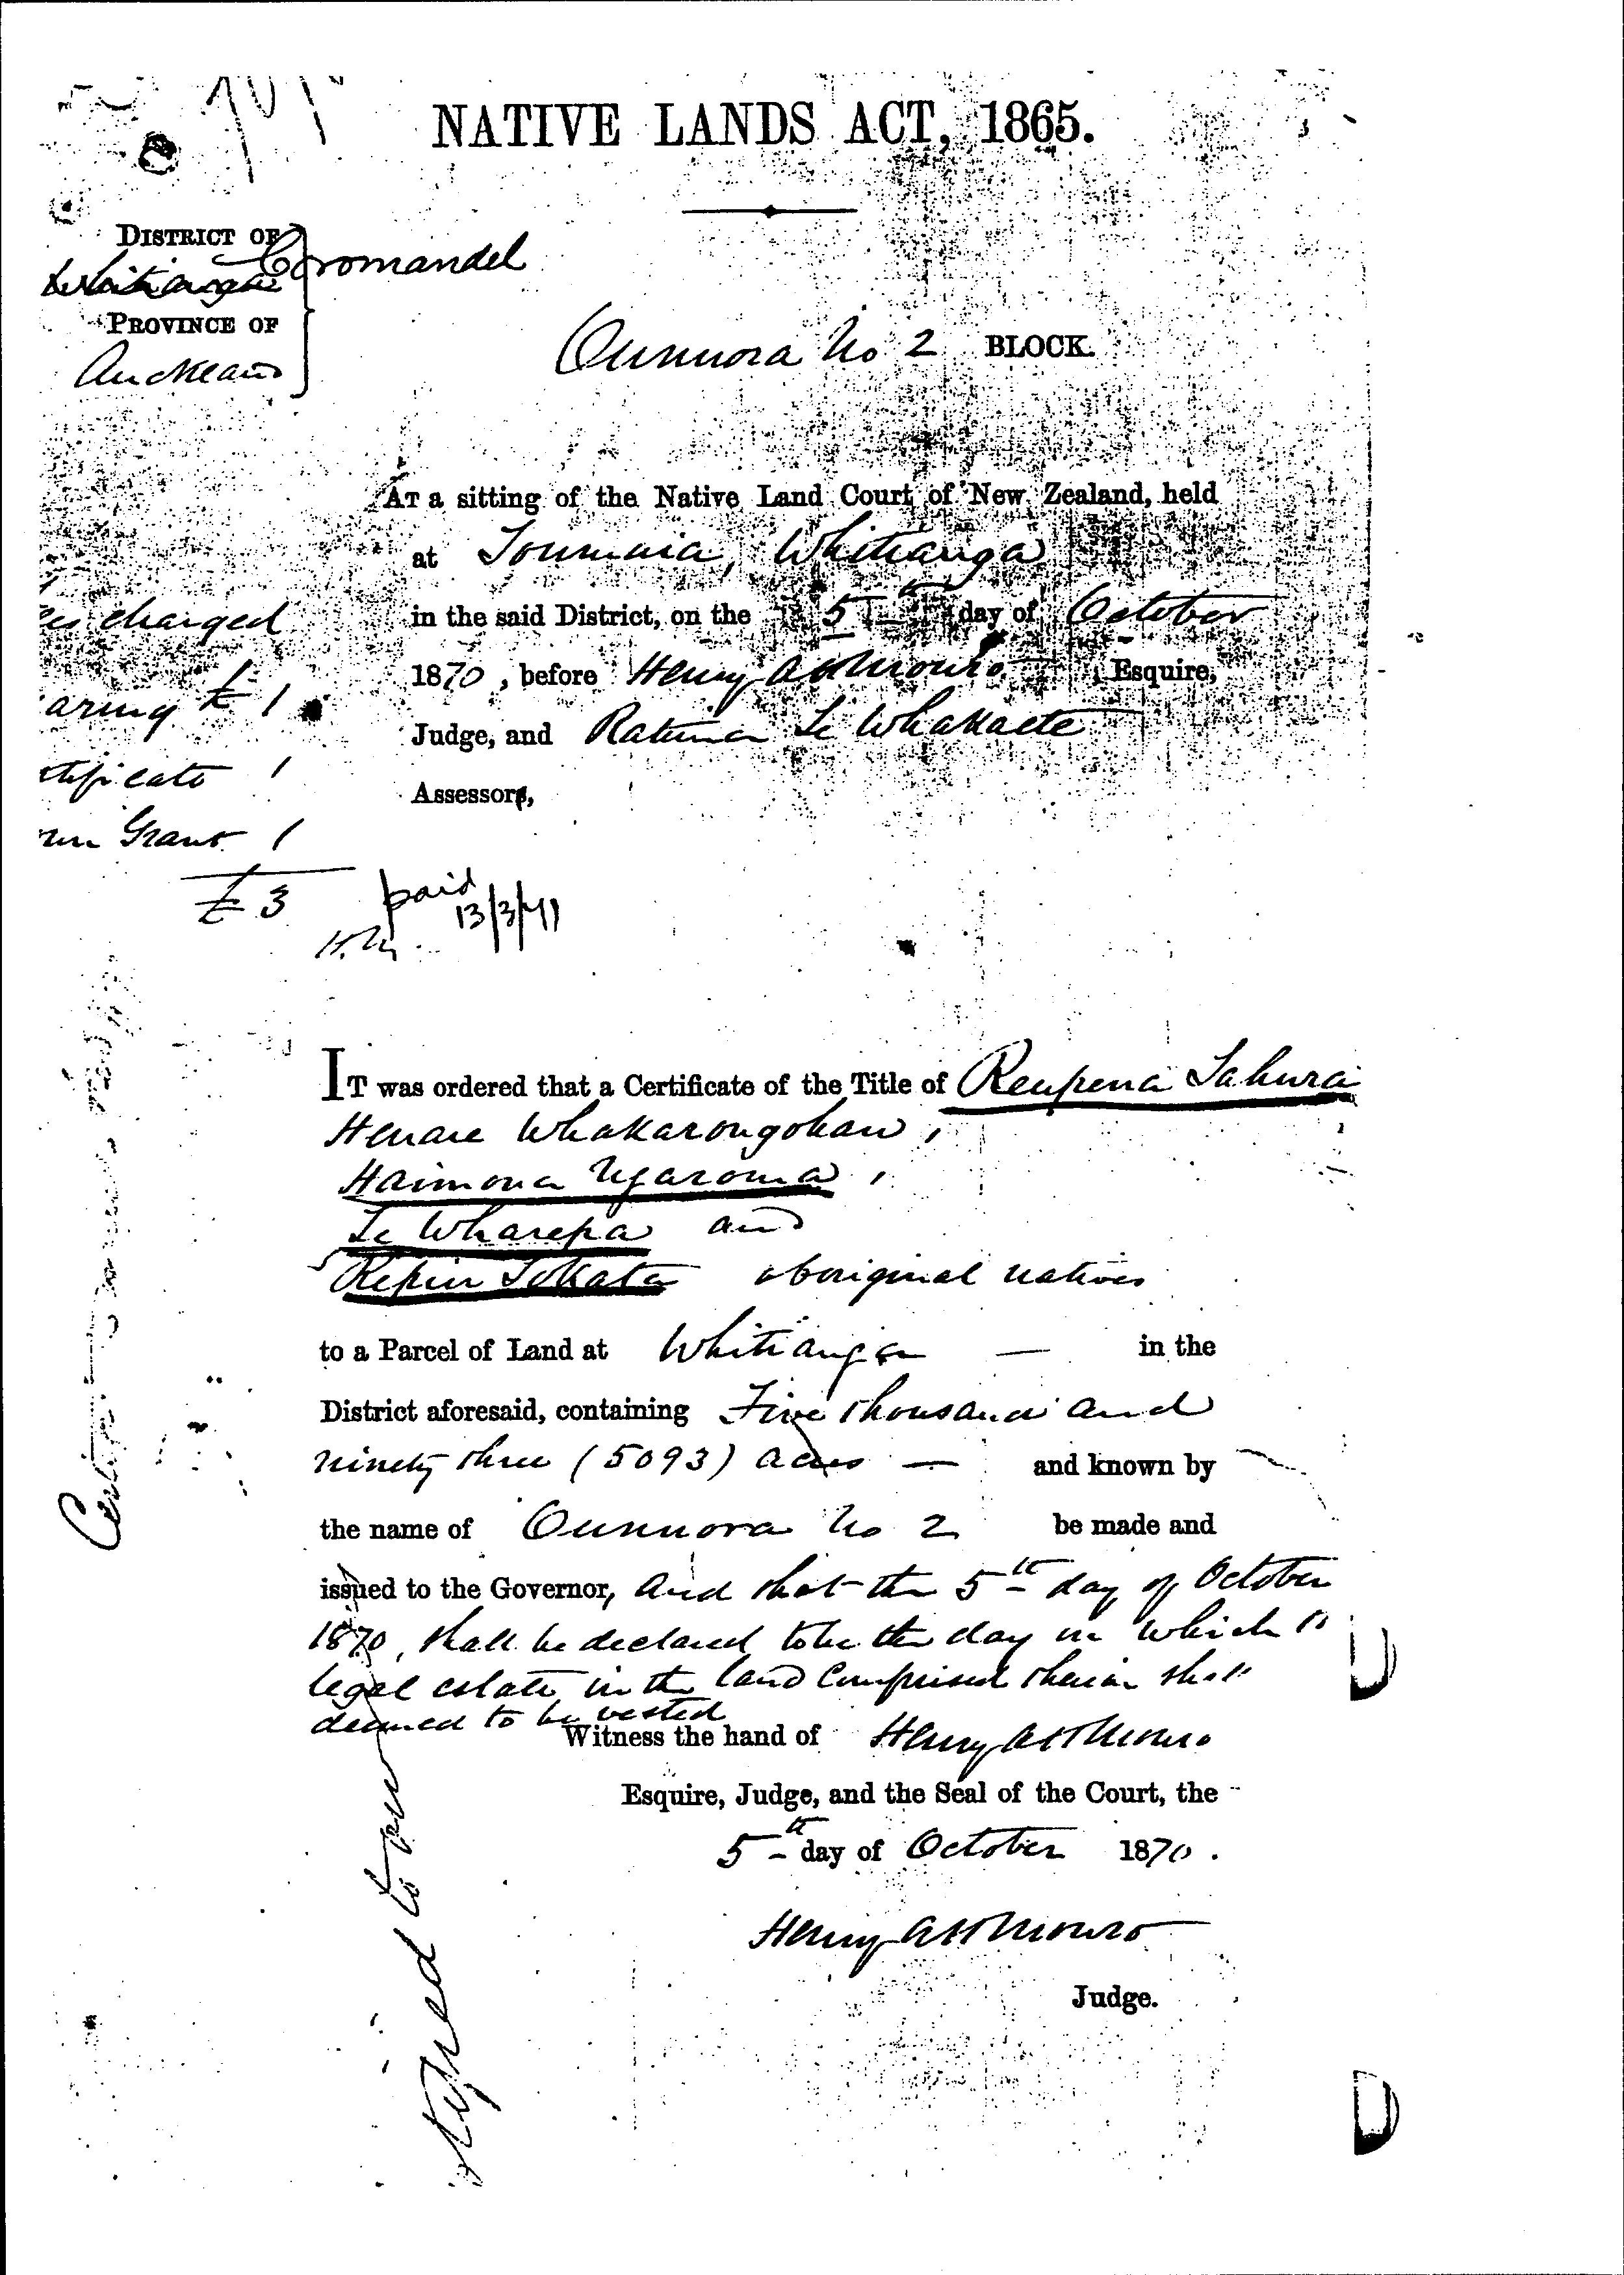 NATIVE LANDS ACT, 1865.
DISTRICT OF
Whitianga Coromandel
PROVINCE OF
Auckland
Ounuora No 2 BLOCK.
AT a sitting of the Native Land Court of New Zealand, held
at Toumuia, Whitianga
in the said District, on the 5th day of October
1870, before Henry A H Monro Esquire,
Judge, and Te Whakaete
Assessors,
charged
aring £ 1
tificate 1
Grant 1
£ 3
paid
13/3/71
IT was ordered that a Certificate of the Title of Reupena Tahura
Henare Whakarongohau,
Haimona Ngaroma,
Te Wharepa and
aboriginal natives
to a Parcel of Land at Whitianga — in the
District aforesaid, containing Five thousand and
ninety three (5093) acres — and known by
the name of Ounuora No 2 be made and
issued to the Governor, and that the 5th day of October
1870, shall be declared to be the day on which
legal estate in the land comprised therein shall
deemed to be vested
Witness the hand of Henry A H Monro
Esquire, Judge, and the Seal of the Court, the
5th day of October 1870.
Henry A H Monro
Judge.